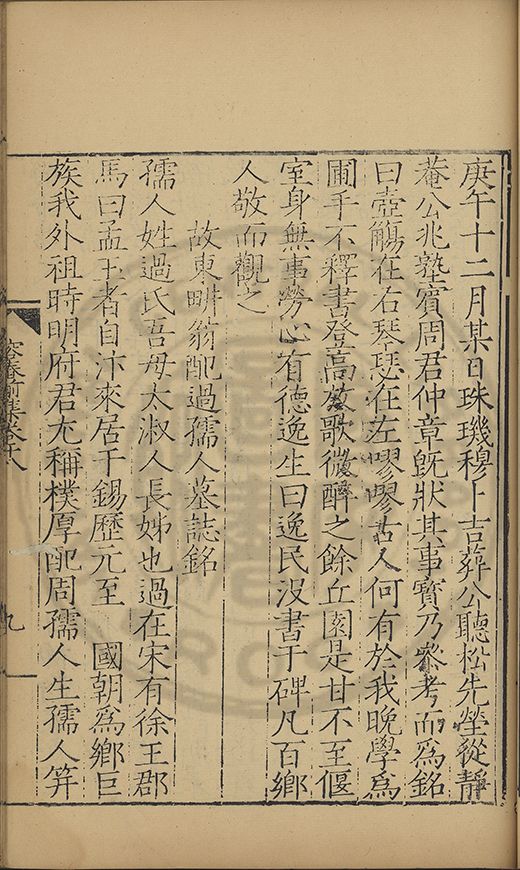 庚午十二月某日珠璣穆卜吉葬公聽松先塋從靜
菴公兆塾賓周君仲章既狀其事寳乃參考而為銘
曰壺觴在右琴瑟在左嘐嘐古人何有於我晚學為
圃手不釋書登高放歌微醉之餘丘園是甘不至偃
室身無事勞心有德逸生曰逸民没書于碑凡百鄉
人敬而觀之
故東畊翁配過孺人墓誌銘
孺人姓過氏吾母太淑人長姊也過在宋有徐王郡
馬曰孟玉者自汴來居于錫歷元至 國朝為鄉巨
族我外祖時明府君尤稱樸厚配周孺人生孺人笄
容春前集卷十八
九